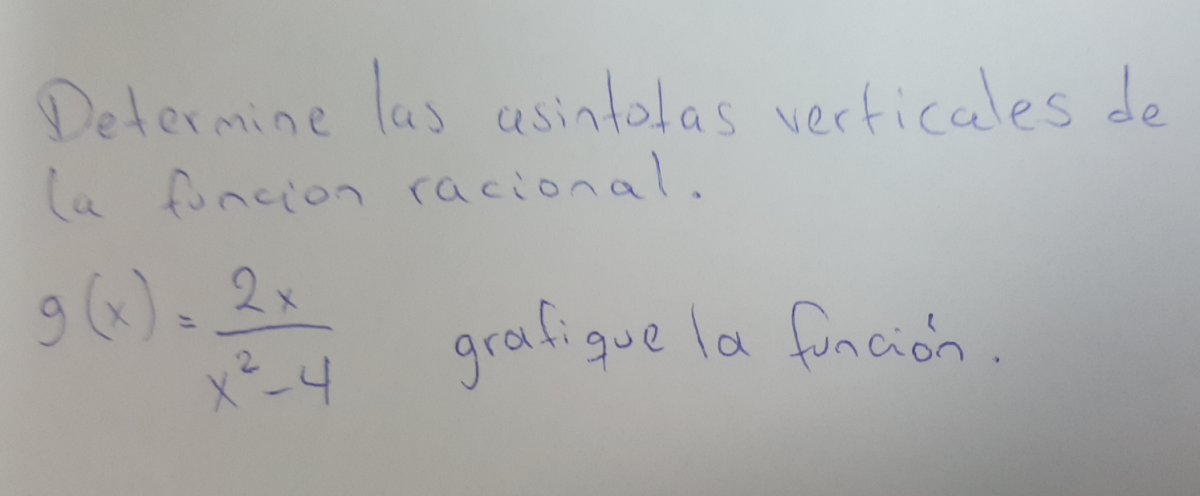 Determine las asintotas verticales de
la funcion racional.
g(x) = 2x / x² - 4 grafique la función.